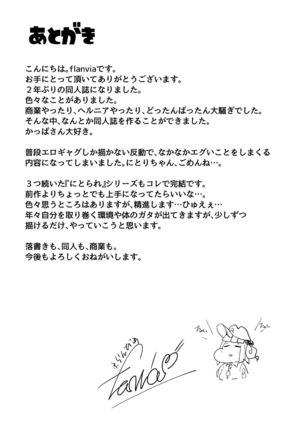 あとがき
こんにちは。flanviaです。
お手にとって頂いてありがとうございます。
２年ぶりの同人誌になりました。
色々なことがありました。
商業やったり、ヘルニアやったり、どったんばったん大騒ぎでした。
そんな中、なんとか同人誌を作ることができました。
かっぱさん大好き。
普段エロギャグしか描かない反動で、なかなかエグいことをしまくる
内容になってしまいました。にとりちゃん、ごめんね…。
３つ続いた『にとられ』シリーズもコレで完結です。
前作よりちょっとでも上手になってたらいいな…。
色々思うところはありますが、精進します…ひゅぇぇ…
年々自分を取り巻く環境や体のガタが出てきますが、少しずつ
描けるだけ、やっていこうと思います。
落書きも、同人も、商業も。
今後もよろしくおねがいします。
ふらんびあ